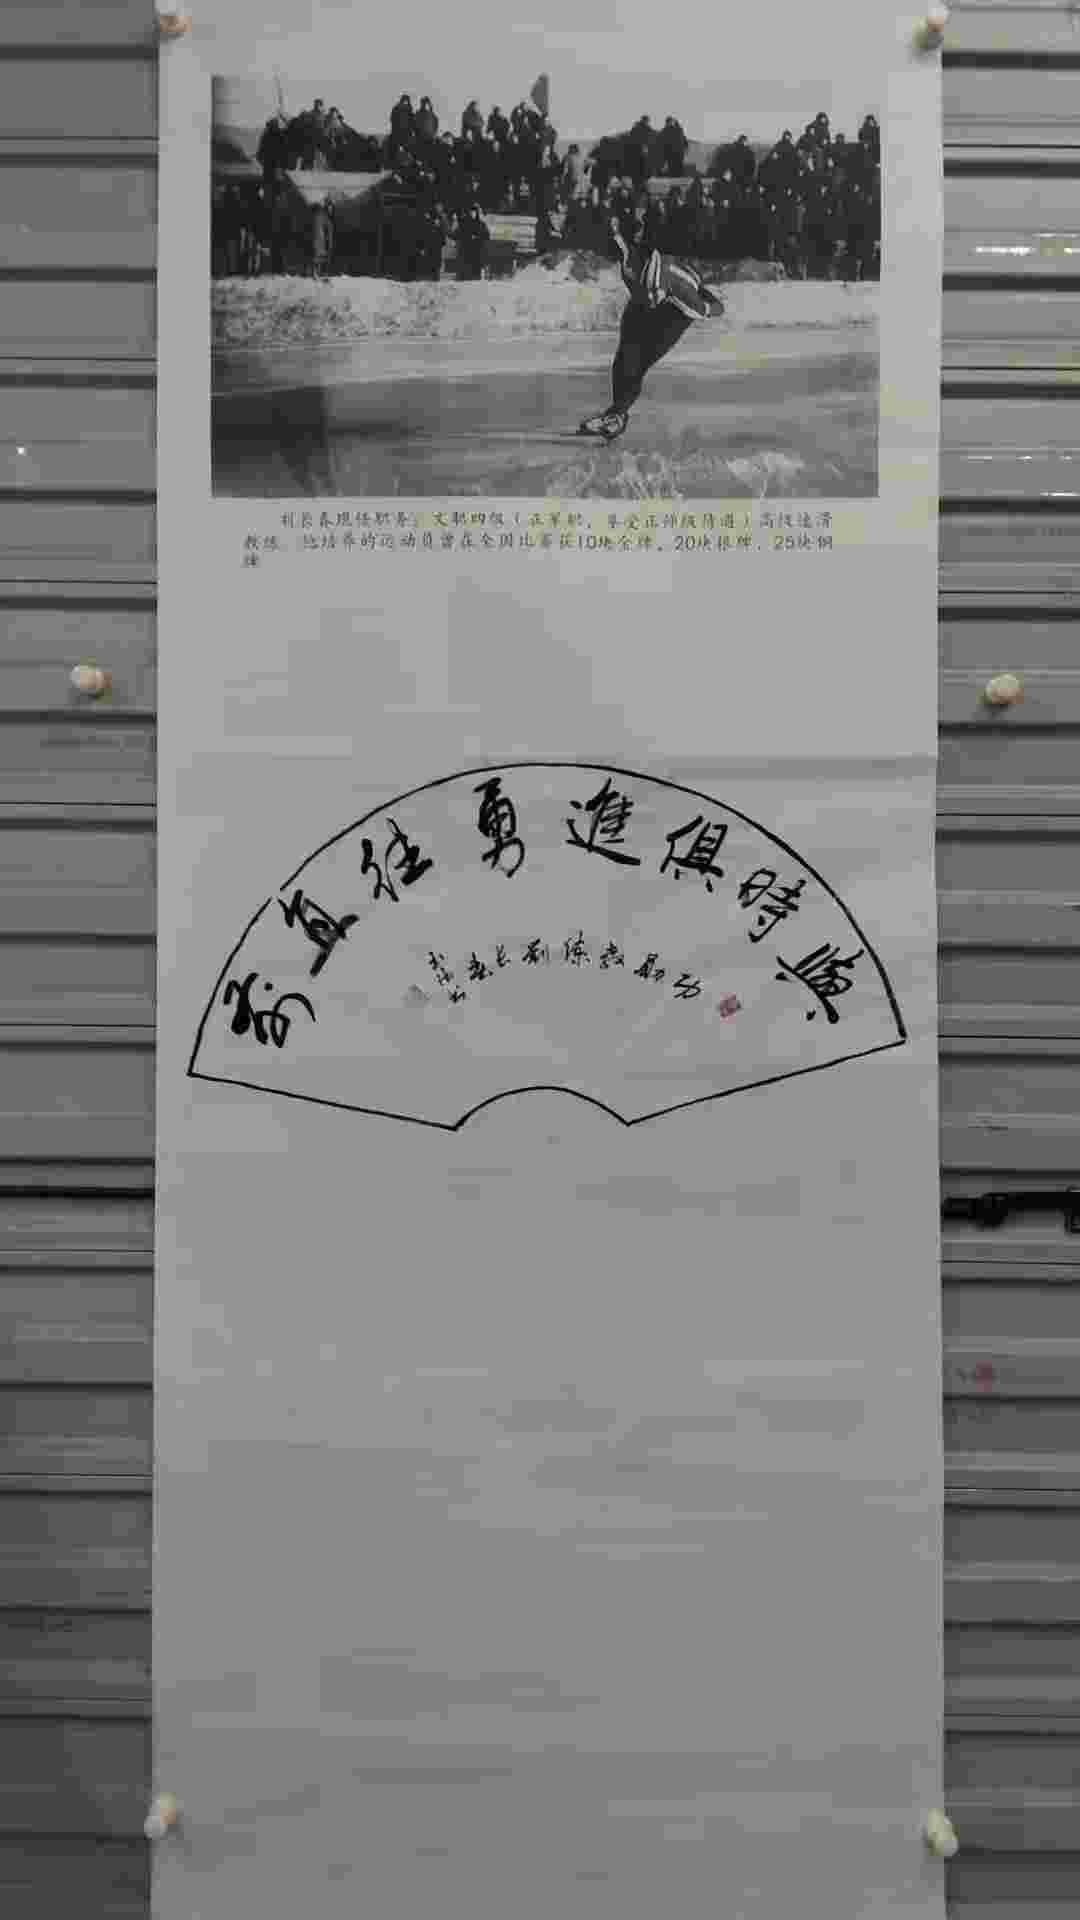 刘长春现任职务：文职四级（正军职，享受正师级待遇）高级速滑
教练。他培养的运动员曾在全国比赛获10块金牌，20块银牌，25块铜
牌
與時俱進勇往直前
功勋教练刘长春